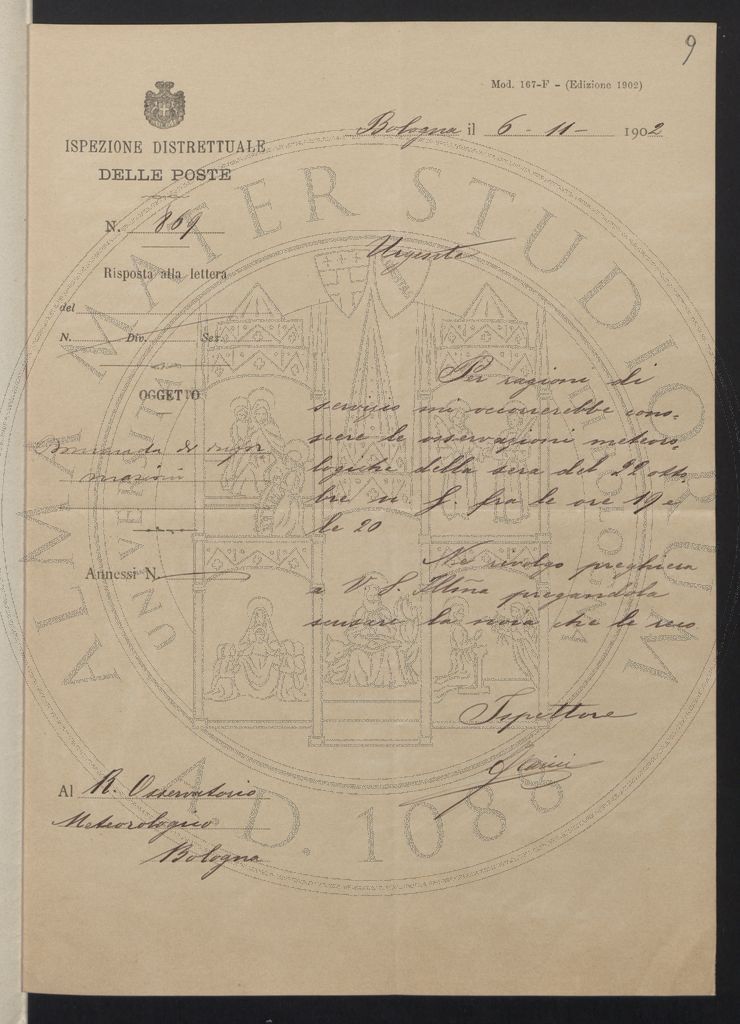 9
Mod. 167-F - (Edizione 1902)
Bologna il 6 - 11 - 1902
ISPEZIONE DISTRETTUALE
DELLE POSTE
N. 869
Urgente
Risposta alla lettera
del
N. Div. Sez.
OGGETTO
Domanda di infor
mazioni
Annessi N.
Per ragioni di
servizio mi occorrerebbe cono-
scere le osservazioni meteoro-
logiche della sera del 22 otto-
bre u. s. fra le ore 19 e
le 20
Ne rivolgo preghiera
a V. S. Ill̃ma pregandola
scusare la noia che le reco
Ispettore
Al R. Osservatorio
Meteorologico
Bologna
ALMA MATER STUDIORUM
A.D. 1088